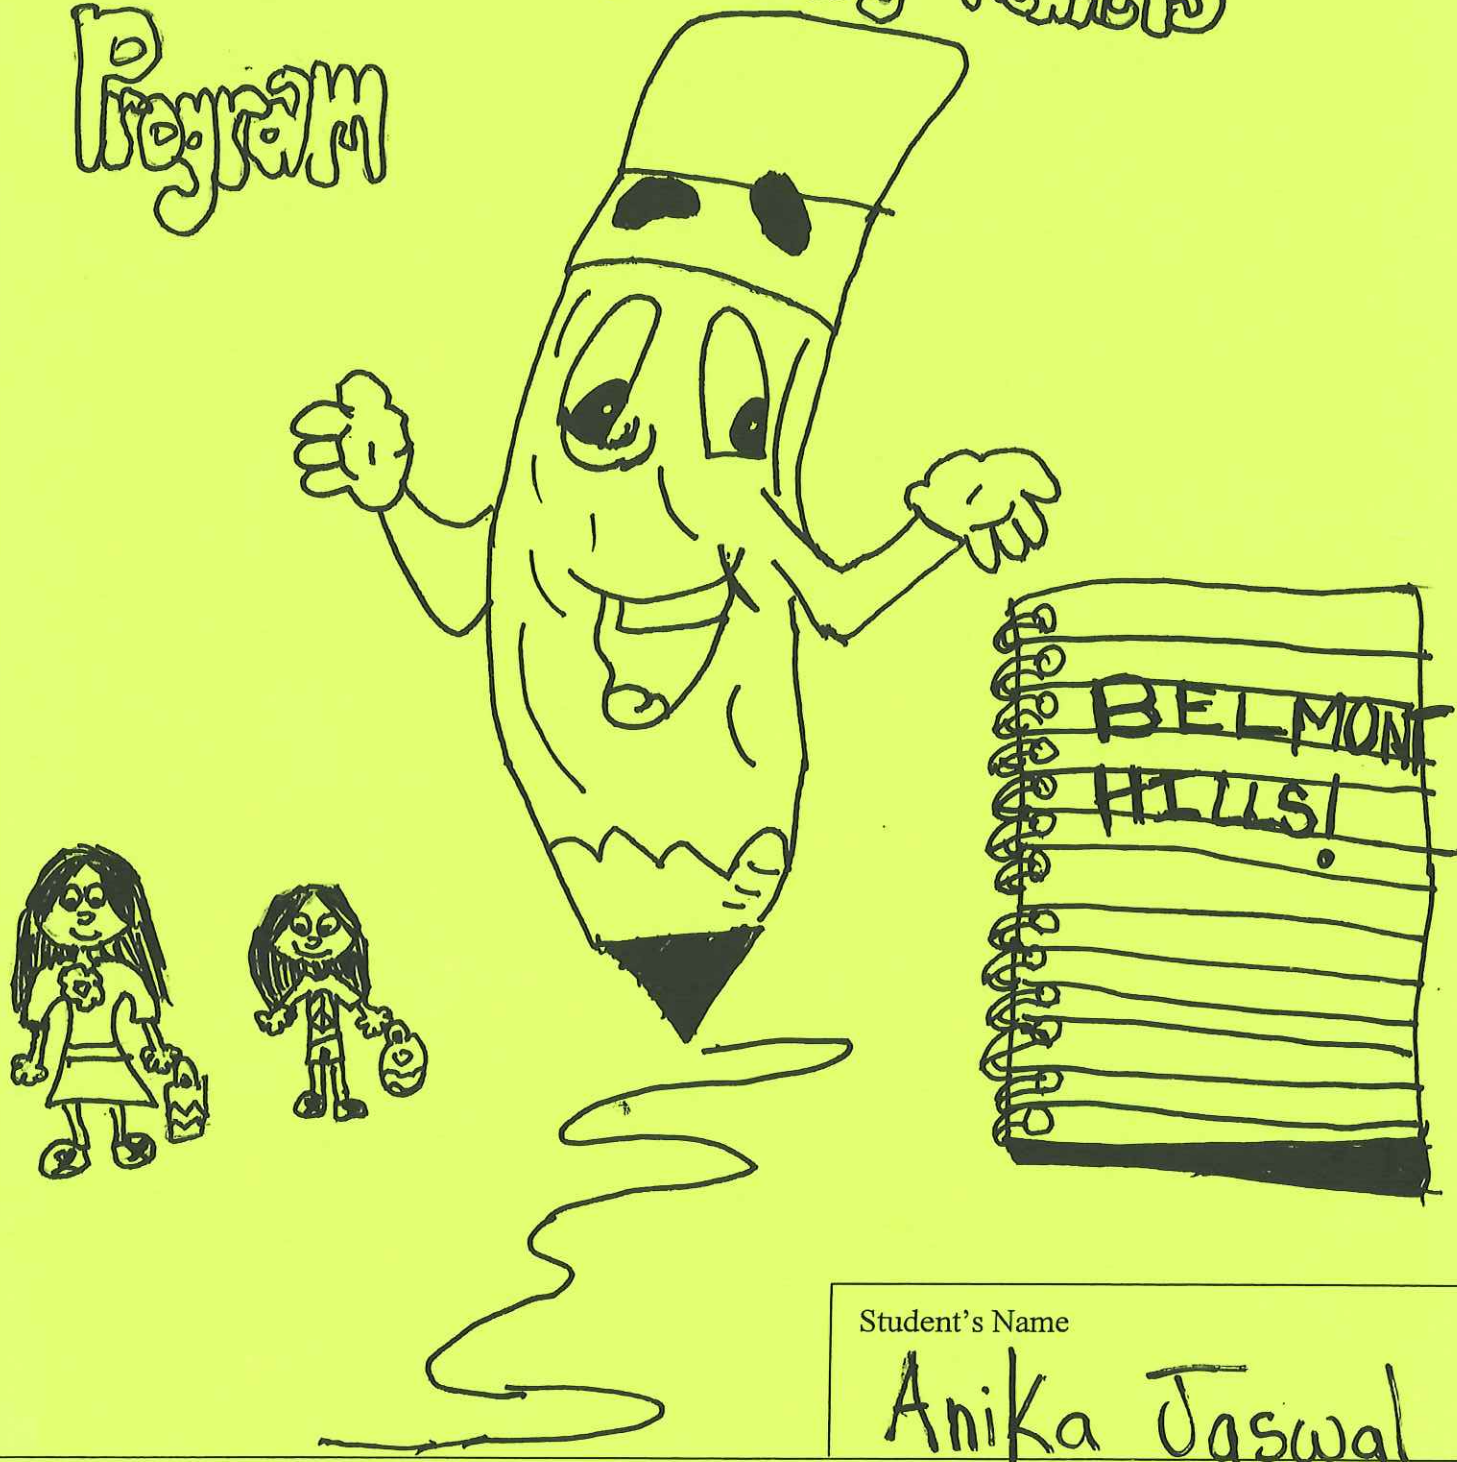 Program
BELMONT
HILLS!
Student's Name
Anika Jaswal